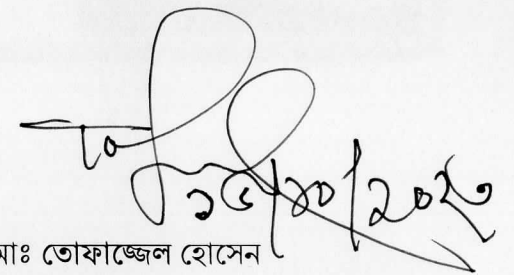 ১৫/১০/২০২৩
মোঃ তোফাজ্জেল হোসেন